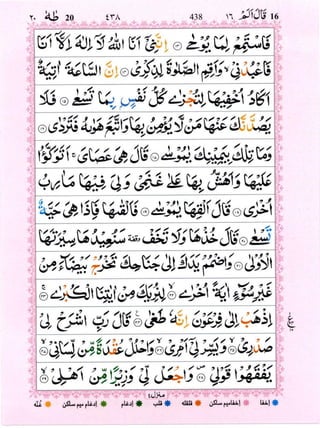 ٢٠ طٰهٰ 20 ٤٣٨ 438 قَالَ اَلَمْ ١٦ 16
فَاسْتَمِعْ لِمَا يُوْحٰى ﴿١٣﴾ اِنَّنِيْٓ اَنَا اللّٰهُ لَآ اِلٰهَ اِلَّآ اَنَا
فَاعْبُدْنِيْ ۙ وَاَقِمِ الصَّلٰوةَ لِذِكْرِيْ ﴿١٤﴾ اِنَّ السَّاعَةَ اٰتِيَةٌ
اَكَادُ اُخْفِيْهَا لِتُجْزٰى كُلُّ نَفْسٍۭ بِمَا تَسْعٰى ﴿١٥﴾ فَلَا
يَصُدَّنَّكَ عَنْهَا مَنْ لَّا يُؤْمِنُ بِهَا وَاتَّبَعَ هَوٰىهُ فَتَرْدٰى ﴿١٦﴾
وَمَا تِلْكَ بِيَمِيْنِكَ يٰمُوْسٰى ﴿١٧﴾ قَالَ هِيَ عَصَايَ ۚ اَتَوَكَّؤُا
عَلَيْهَا وَاَهُشُّ بِهَا عَلٰى غَنَمِيْ وَلِيَ فِيْهَا مَاٰرِبُ
اُخْرٰى ﴿١٨﴾ قَالَ اَلْقِهَا يٰمُوْسٰى ﴿١٩﴾ فَاَلْقٰىهَا فَاِذَا هِيَ حَيَّةٌ
تَسْعٰى ﴿٢٠﴾ قَالَ خُذْهَا وَلَا تَخَفْ وقفة سَنُعِيْدُهَا سِيْرَتَهَا
الْاُوْلٰى ﴿٢١﴾ وَاضْمُمْ يَدَكَ اِلٰى جَنَاحِكَ تَخْرُجْ بَيْضَآءَ مِنْ
غَيْرِ سُوْٓءٍ اٰيَةً اُخْرٰى ﴿٢٢﴾ لِنُرِيَكَ مِنْ اٰيٰتِنَا الْكُبْرٰى ﴿٢٣﴾
اِذْهَبْ اِلٰى فِرْعَوْنَ اِنَّهٗ طَغٰى ﴿٢٤﴾ قَالَ رَبِّ اشْرَحْ لِيْ
صَدْرِيْ ﴿٢٥﴾ وَيَسِّرْ لِيْٓ اَمْرِيْ ﴿٢٦﴾ وَاحْلُلْ عُقْدَةً مِّنْ لِّسَانِيْ ﴿٢٧﴾
يَفْقَهُوْا قَوْلِيْ ﴿٢٨﴾ وَاجْعَلْ لِّيْ وَزِيْرًا مِّنْ اَهْلِيْ ﴿٢٩﴾
منزل ٤
اخفا اخفا میم ساکن قلقله قلب ادغام ادغام میم ساکن غنّه